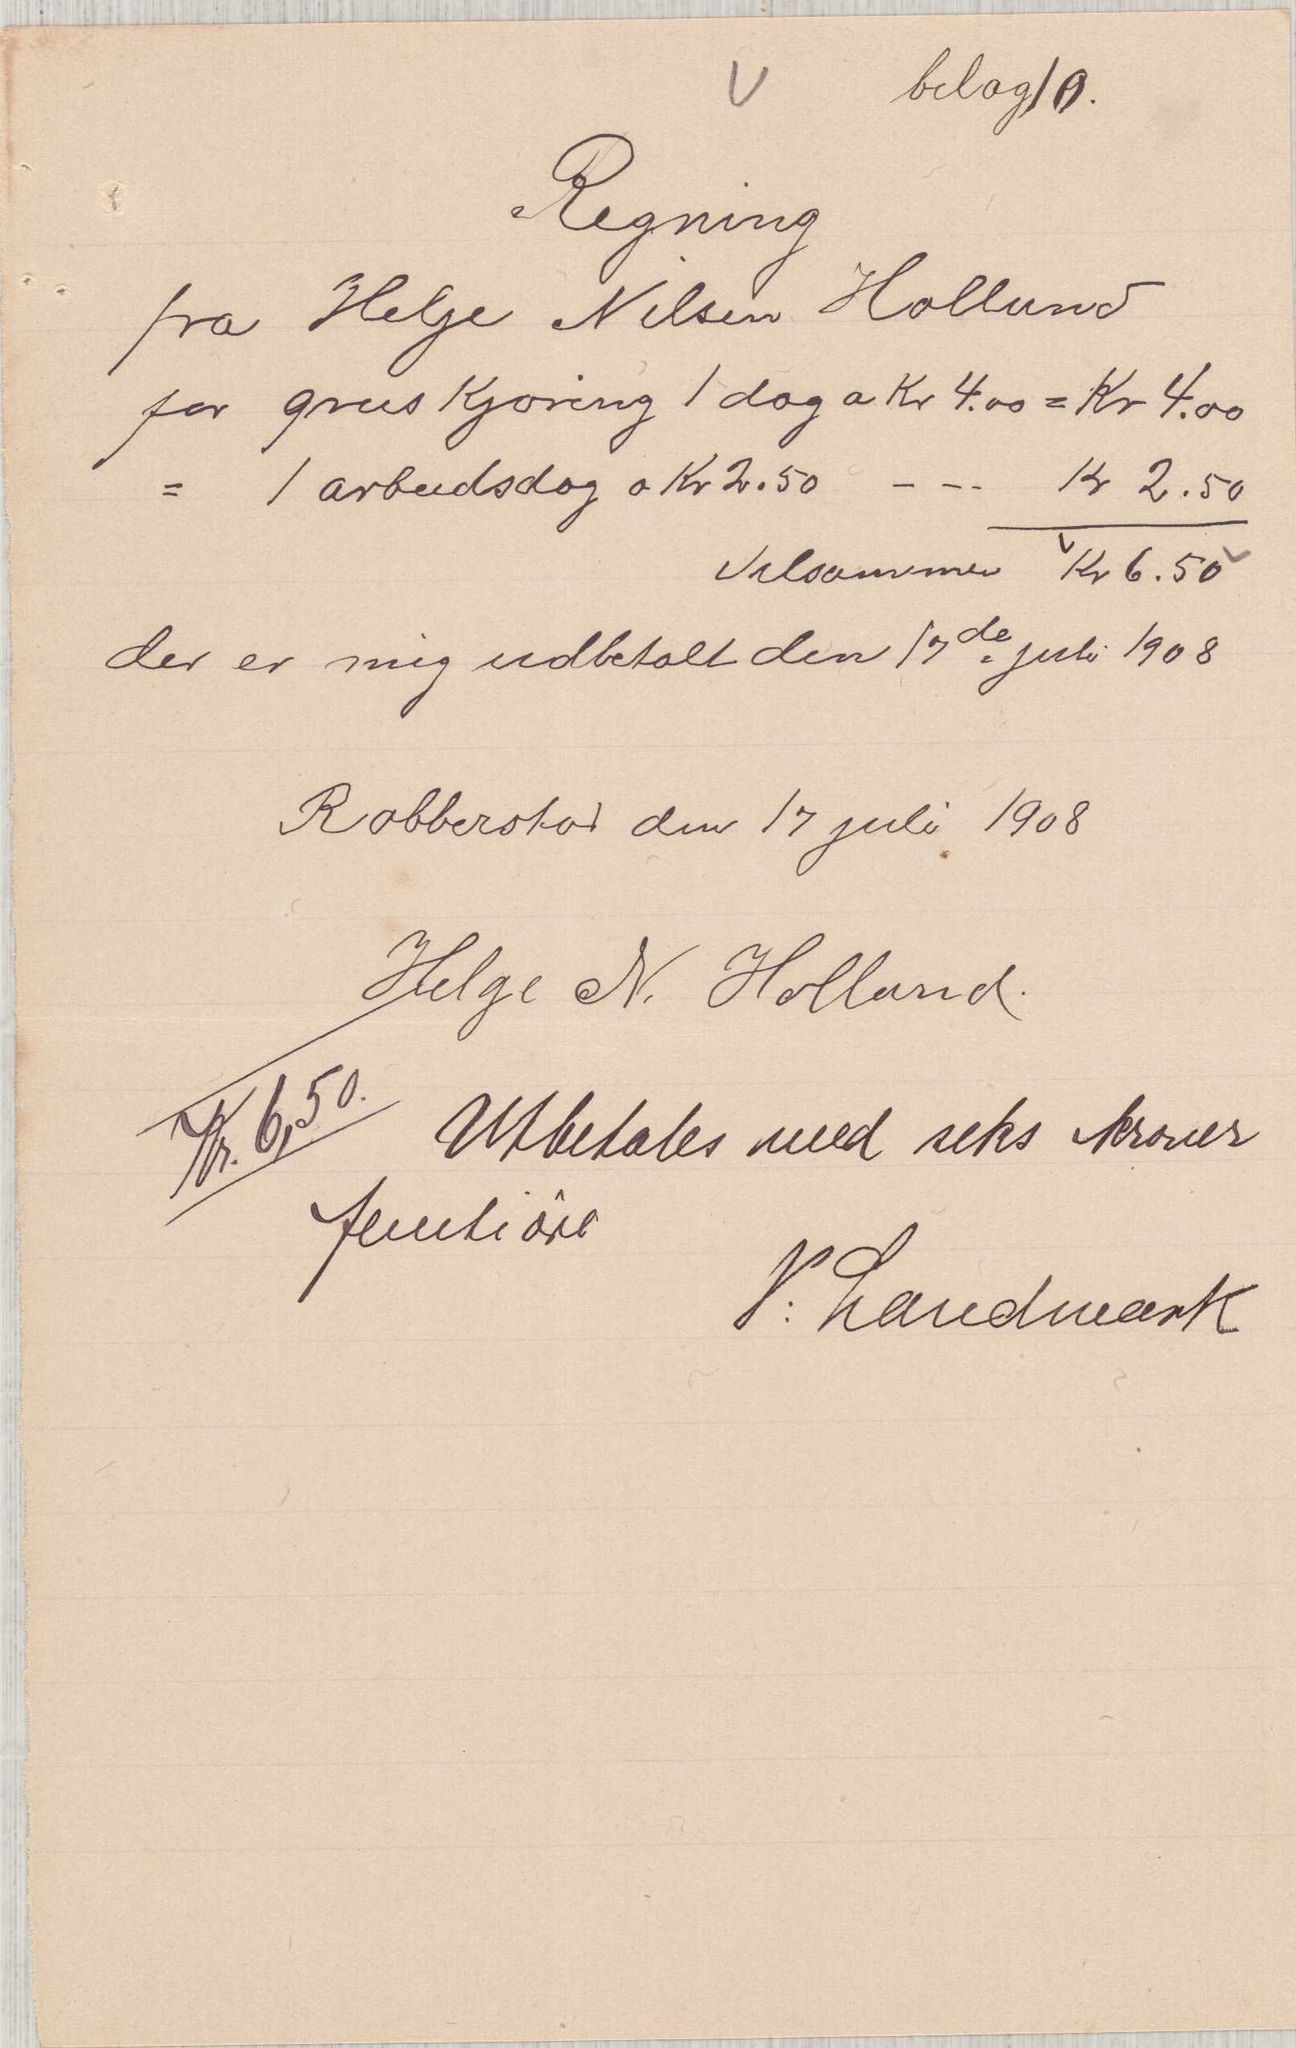 V belag 10.
Regning
fra Helje Nilsen Hollund
for gruskjøring 1 dag a Kr 4.00 = Kr 4.00
= 1 arbeidsdag a Kr 2.50 - - - Kr 2.50
tilsammen Kr 6.50
der er mig udbetalt den 17de juli 1908
Robberstad den 17 juli 1908
Helge N. Hollund.
Kr. 6,50. Utbetales med seks kroner
femti öre
V. Landmark